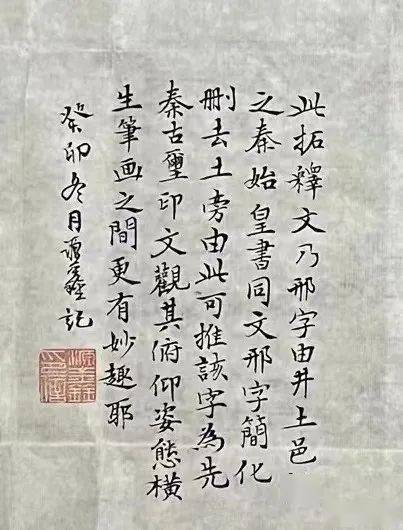 此拓釋文乃邢字由井土邑
之秦始皇書同文邢字簡化
删去土旁由此可推該字為先
秦古璽印文觀其俯仰姿態橫
生筆画之間更有妙趣耶
癸卯冬月記